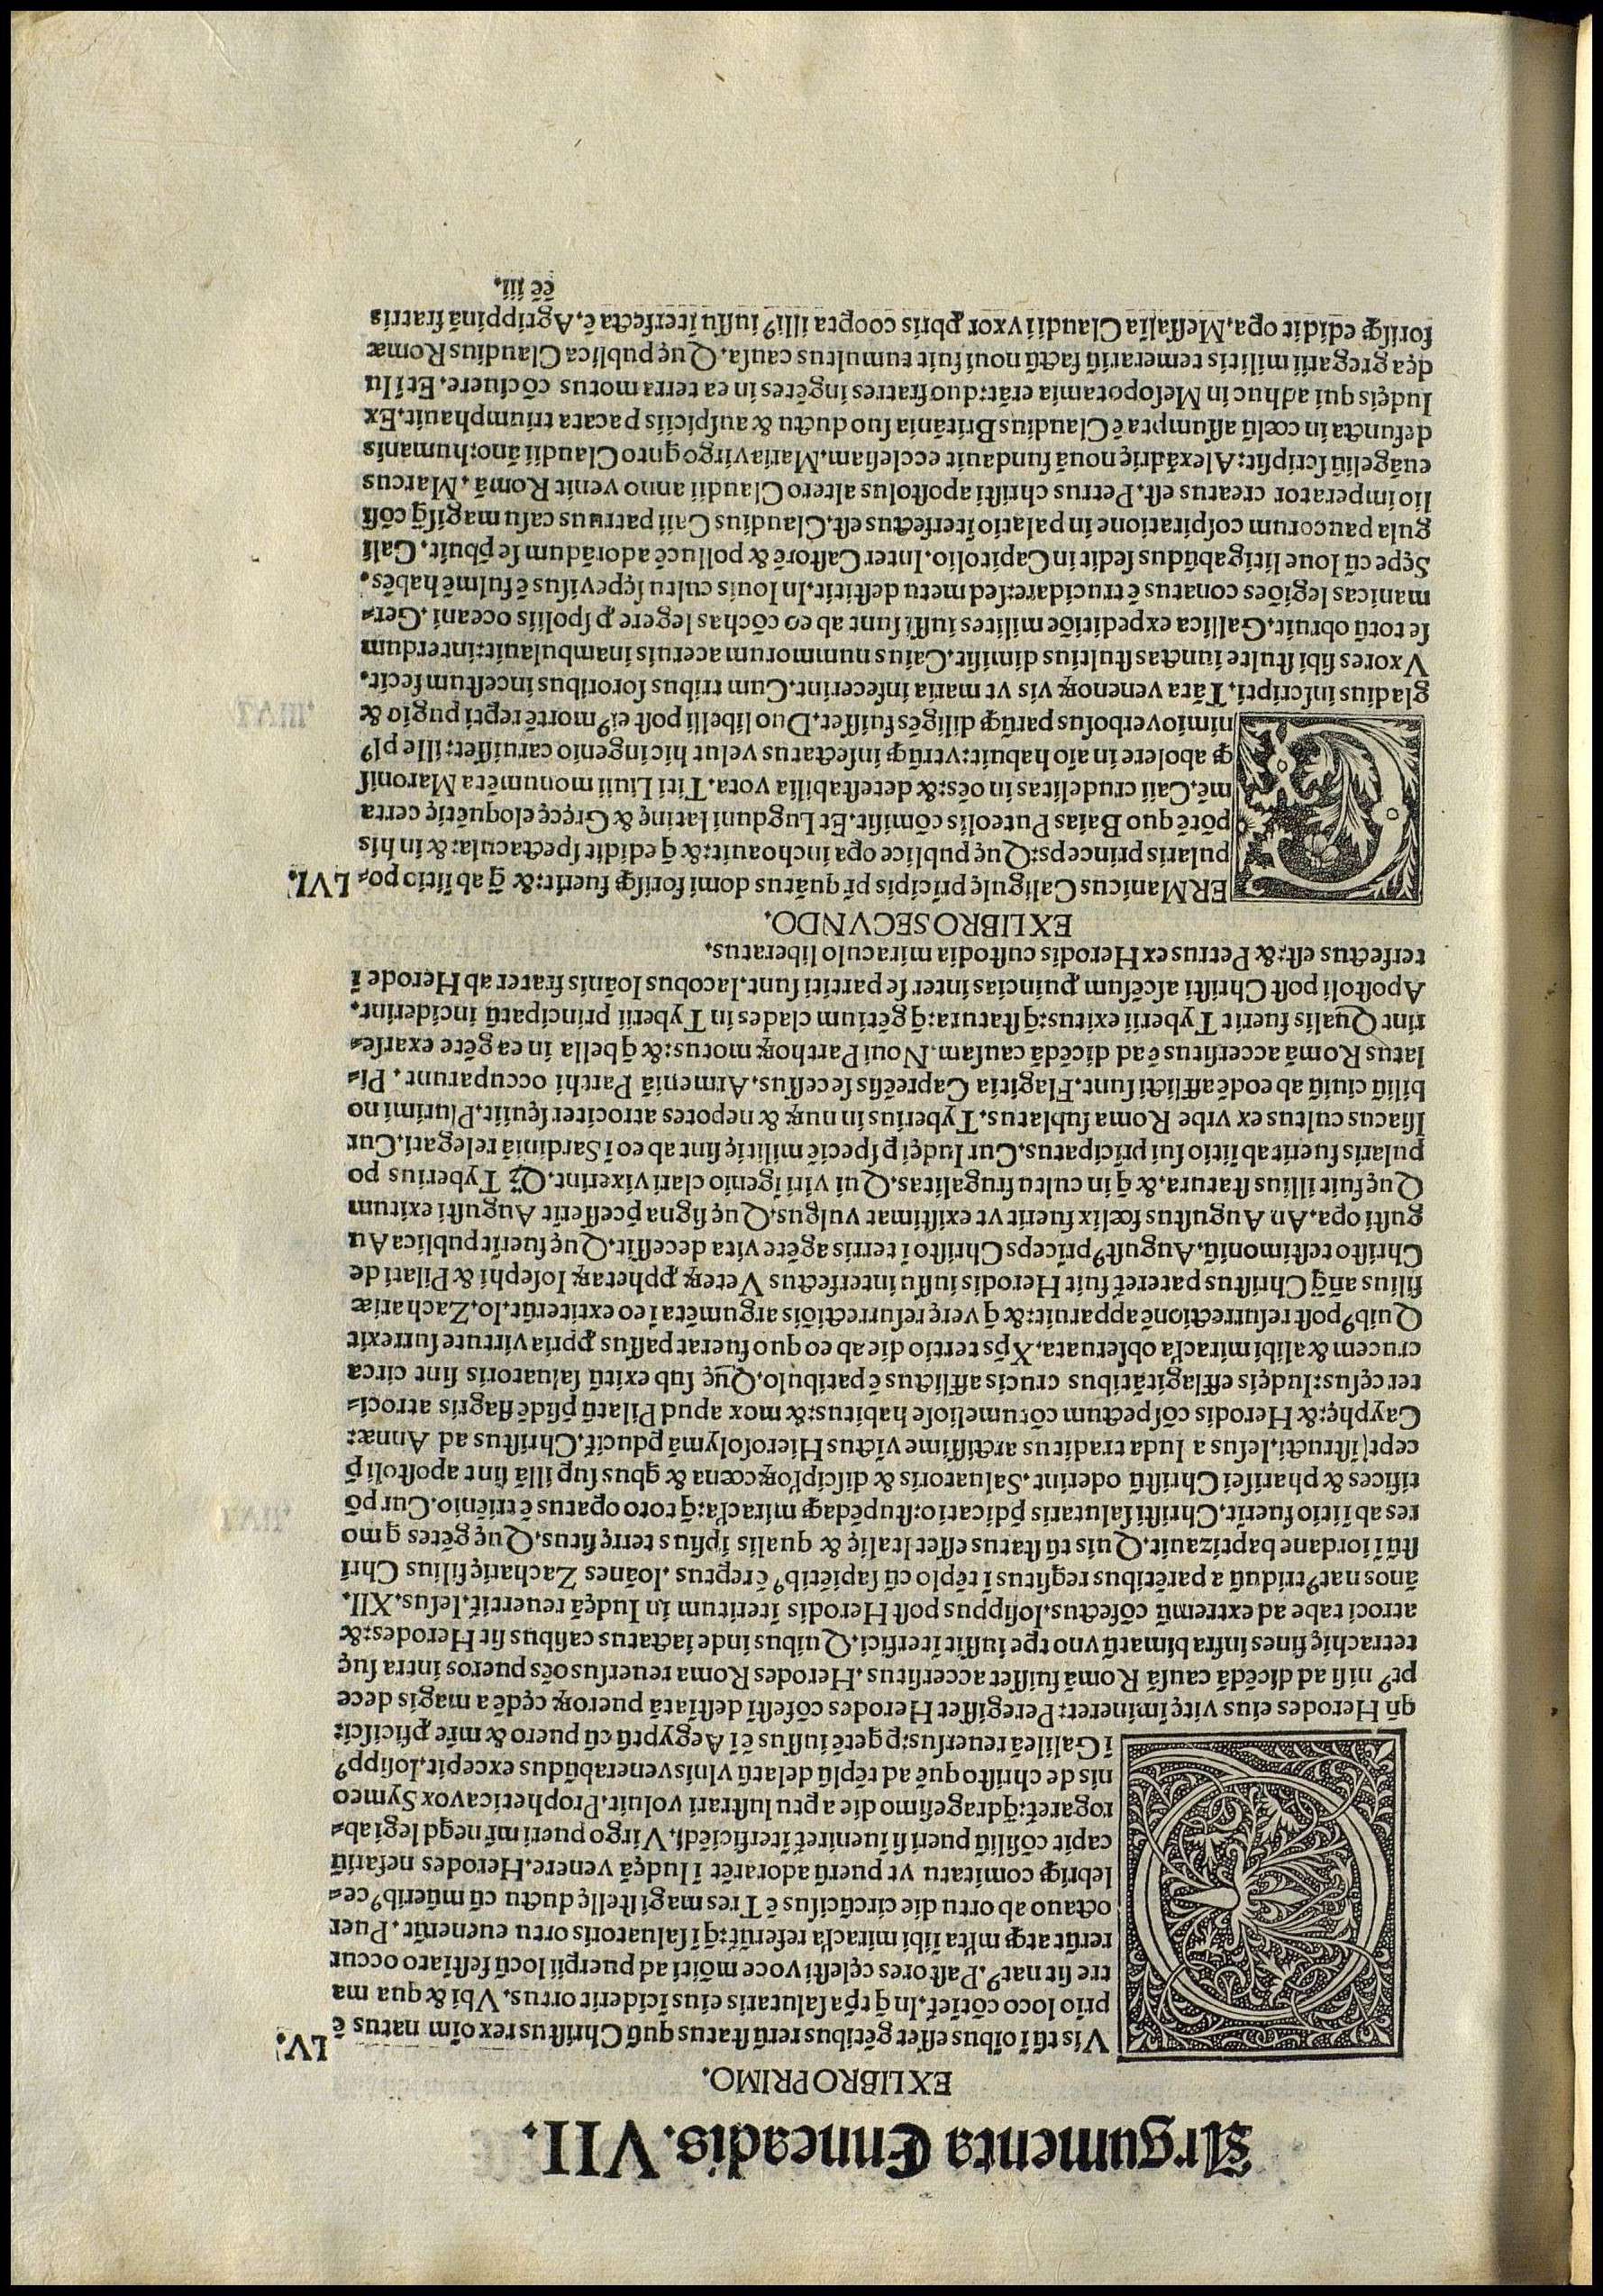 Argumenta Enneadis. VII.
EX LIBRO PRIMO.
QVis tū ī oībus eſſet gētibus rerū ſtatus quū Chriſtus rex oīm natus ē LV.
prīo loco cōtīeſ. In q tꝑa ſalutaris eius īciderit ortus. Vbi & qua ma
tre ſit nat⁹. Paſtores cęleſti voce mōiti ad puerpii locū feſtīato occur
rerūt atqꝫ mĺta ſibi miracła referūt: q̄ ī ſaluatoris ortu euenerūt. Puer
octauo ab ortu die circūciſus ē Tres magi ſtellę ductu cū mūerib⁹ ce⸗
lebriqꝫ comitatu vt puerū adorarēt ī Iudęā venere. Herodes nefariū
capit cōſiliū pueri ſi īueniret̄ īterficiēdi. Virgo pueri mr̄ neqd legi ab⸗
rogaret̄: q̄drageſimo die a ptu luſtrari voluit. Prophetica vox Symeo
nis de chriſto quē ad tēplū delatū vlnis venerabūdus excepit. Ioſipp⁹
ī Galileā reuerſus: ꝑgere iuſſus ē ī Aegyptū cū puero & mr̄e ꝓficiſci:
qn̄ Herodes eius vitę īmineret: Peregiſſet Herodes cōfeſti deſtīatā pueroꝝ cędē a magis dece
pt⁹ niſi ad dicēdā cauſā Romā fuiſſet accerſitus. Herodes Roma reuerſus oēs pueros intra ſuę
tetrachię fines infra bimatū vno tpe iuſſit īterfici. Quibus inde iactatus caſibus ſit Herodes: &
atroci tabe ad extremū cōfectus. Ioſippus poſt Herodis īteritum in Iudęā reuertit̄. Ieſus. XII.
ānos nat⁹ triduū a parētibus reqſitus ī tēplo cū ſapiētib⁹ ē reptus. Ioānes Zacharię filius Chri
ſtū ī iordane baptizauit. Quis tū ſtatus eſſet Italię & qualis ipſius terrę ſitus. Quę gētes qmo
res ab īitio fuerīt. Chriſti ſalutaris p̄dicatio: ſtupēdaqꝫ miracła: q̄ toto opatus ē triēnio. Cur pō
tifices & phariſei Chriſtū oderint. Saluatoris & diſcipĺoꝝ cœna & qbus ſuꝑ illā ſint apoſtoli p̄
ceptſ īſtructi. Ieſus a Iuda traditus arctiſſime victus Hieroſolymā ꝑducit̄. Chriſtus ad Annæ:
Cayphę: & Herodis cōſpectum cōtumelioſe habitus: & mox apud Pilatū p̄ſidē flagris atroci⸗
ter ceſus: Iudęis efflagitātibus crucis afflictus ē patibulo. Quę ſub exitū ſaluatoris ſint circa
crucem & alibi miracła obſeruata. Xp̄s tertio die ab eo quo fuerat paſſus ꝓpria virtute ſurrexit
Quib⁹ poſt reſurrectionē apparuit: & q̄ verę reſurrectiōis argumēta ī eo extiterūt. Io. Zachariæ
filius an̄q̄ Chriſtus pateret̄ fuit Herodis iuſſu interfectus Veteꝝ ꝓphetaꝝ Ioſephi & Pilati de
Chriſto teſtimoniū. Auguſt⁹ prīceps Chriſto ī terris agēte vita deceſſit. Quę fuerīt publica Au
guſti opa. An Auguſtus fœlix fuerit vt exiſtimat vulgus. Quę ſigna p̄ceſſerīt Auguſti exitum
Quę fuit illius ſtatura. & q in cultu frugalitas. Qui viri īgenio clari vixerint. Qꝫ Tyberius po
pularis fuerit ab īitio ſui prīcipatus. Cur Iudęi ꝑ ſpeciē militię ſint ab eo ī Sardiniā relegati. Cur
Iſiacus cultus ex vrbe Roma ſublatus. Tyberius in nuꝝ & nepotes atrociter ſęuiit. Plurimi no
biliū ciuiū ab eodē afflicti ſunt. Flagitia Capreēſis ſeceſſus. Armeniā Parthi occuparunt. Pi⸗
latus Romā accerſitus ē ad dicēdā cauſam. Noui Parthoꝝ motus: & q bella in ea gēte exarſe⸗
rint Qualis fuerit Tyberii exitus: q ſtatura: q̄ gētium clades in Tyberii principatū inciderint.
Apoſtoli poſt Chriſti aſcēſum ꝓuincias inter ſe partiti ſunt. Iacobus Ioānis frater ab Herode ī
terfectus eſt: & Petrus ex Herodis cuſtodia miraculo liberatus.
EX LIBRO SECVNDO.
GERManicus Caligulę prīcipis pr̄ quātus domi foriſqꝫ fuerīt: & q̄ ab īitio po⸗ LVI.
pularis princeps: Quę publice opa inchoauit: & q edidit ſpectacula: & in his
pōtē quo Baias Puteolis cōmiſit. Et Lugduni latinę & Gręcę eloquētię certa
mē. Caii crudelitas in oēs: & deteſtabilia vota. Titi Liuii monumēta Maroniſ
qꝫ abolere in aīo habuit: vtrūqꝫ inſectatus velut hic ingenio caruiſſet: ille pĺ⁹
nimio verboſus parūqꝫ diligēs fuiſſet. Duo libelli poſt ei⁹ mortē reꝑti pugio &
gladius inſcripti. Tāta venenoꝝ vis vt maria infecerint. Cum tribus ſororibus inceſtum fecit.
Vxores ſibi ſtulte iunctas ſtultius dimiſit. Caius nummorum aceruis inambulauit: interdum
ſe totū obruit. Gallica expeditiōe milites iuſſi ſunt ab eo cōchas legere ꝑ ſpoliis oceani. Ger⸗
manicas legiōes conatus ē trucidare: ſed metu deſtitit. In Iouis cultu ſępe viſus ē fulmē habēs.
Sępe cū Ioue litigabūdus ſedit in Capitolio. Inter Caſtorē & pollucē adorādum ſe p̄buit. Cali
gula paucorum coſpiratione in palatio īterfectus eſt. Claudius Caii patruus caſu magiſq̄ cōſi
lio imperator creatus eſt. Petrus chriſti apoſtolus altero Claudii anno venit Romā. Marcus
euāgeliū ſcripſit: Alexādrię nouā fundauit eccleſiam. Maria virgo qnto Claudii āno: humanis
defuncta in cœlū aſſumpta ē Claudius Britāniā ſuo ductu & auſpiciis pacata triumphauit. Ex
Iudęis qui adhuc in Meſopotamia erāt: duo fratres ingētes in ea terra motus cōciuere. Et ī Iu
dęa gregarii militis temerariū factū noui fuit tumultus cauſa. Quę publica Claudius Romæ
foriſqꝫ edidit opa. Meſſalīa Claudii vxor ꝓbris cooꝑta illi⁹ iuſſu īterfecta ē. Agrippinā fratris
ēē iii.